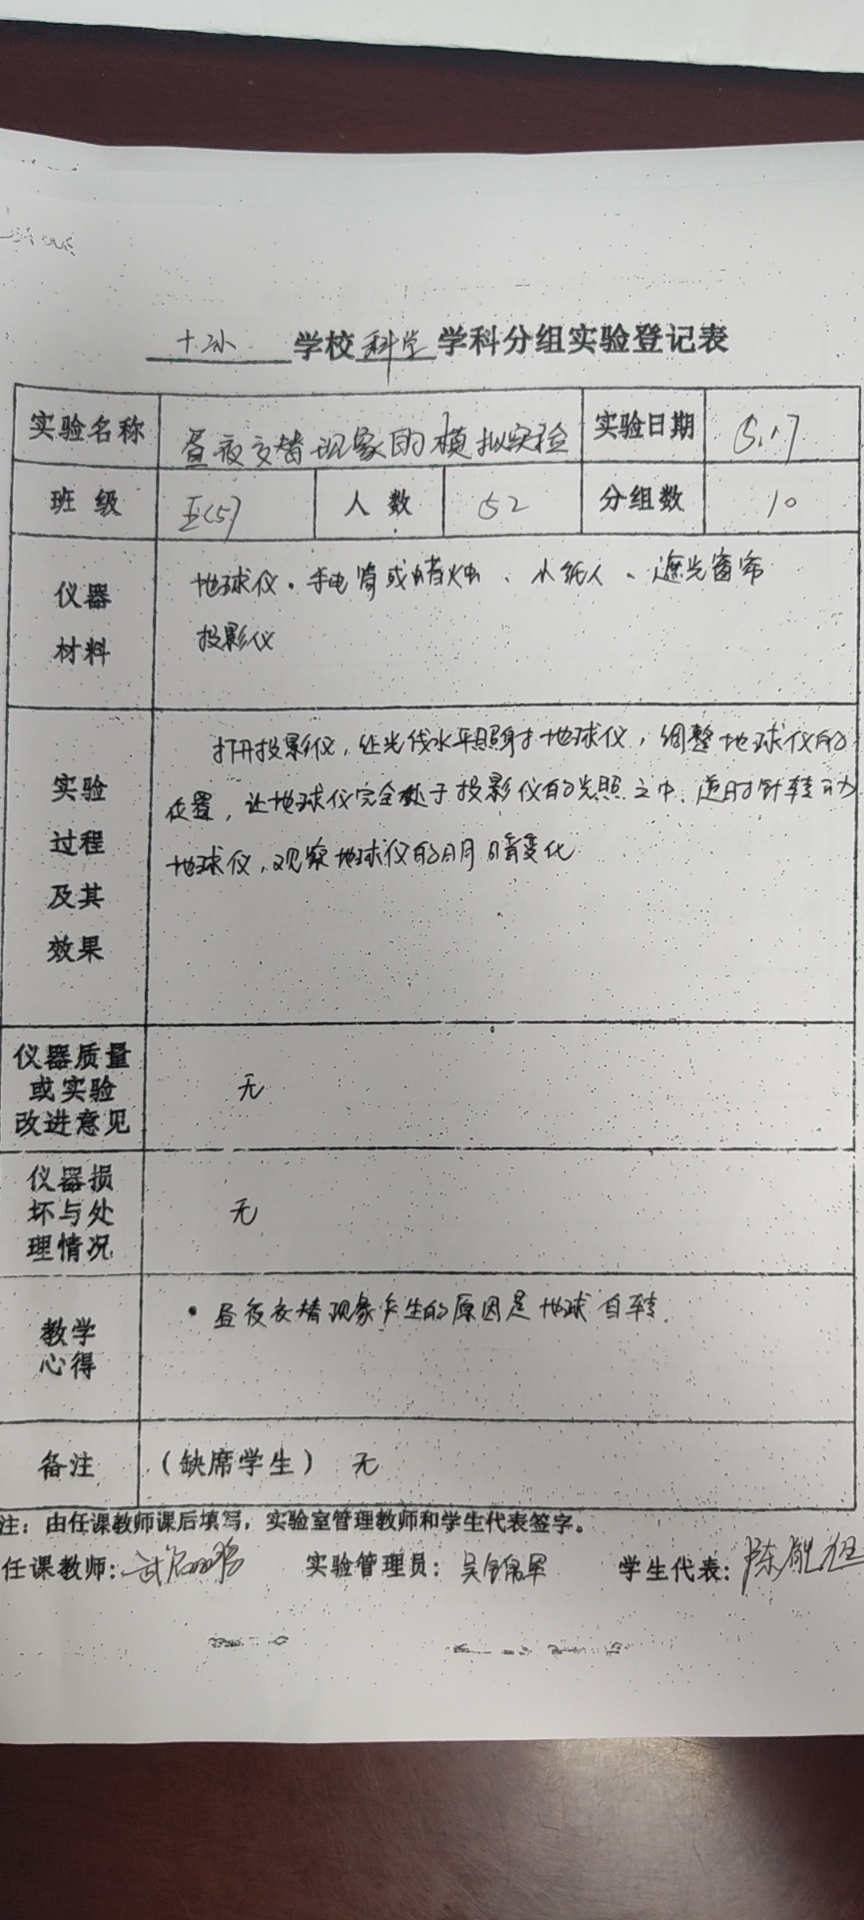 十小 学校 科学 学科分组实验登记表
实验名称 昼夜交替现象的模拟实验 实验日期 5.17
班 级 五(5) 人 数 52 分组数 10
仪器材料 地球仪、手电筒或蜡烛、小纸人、遮光窗布
投影仪
实验过程及其效果 打开投影仪,让光线水平照射于地球仪,调整地球仪的
位置,让地球仪完全处于投影仪的光照之中、逆时针转动
地球仪,观察地球仪的明暗变化
仪器质量或实验改进意见 无
仪器损坏与处理情况 无
教学心得 昼夜交替现象产生的原因是地球自转.
备注 (缺席学生) 无
注:由任课教师课后填写,实验室管理教师和学生代表签字。
任课教师: 实验管理员: 学生代表: